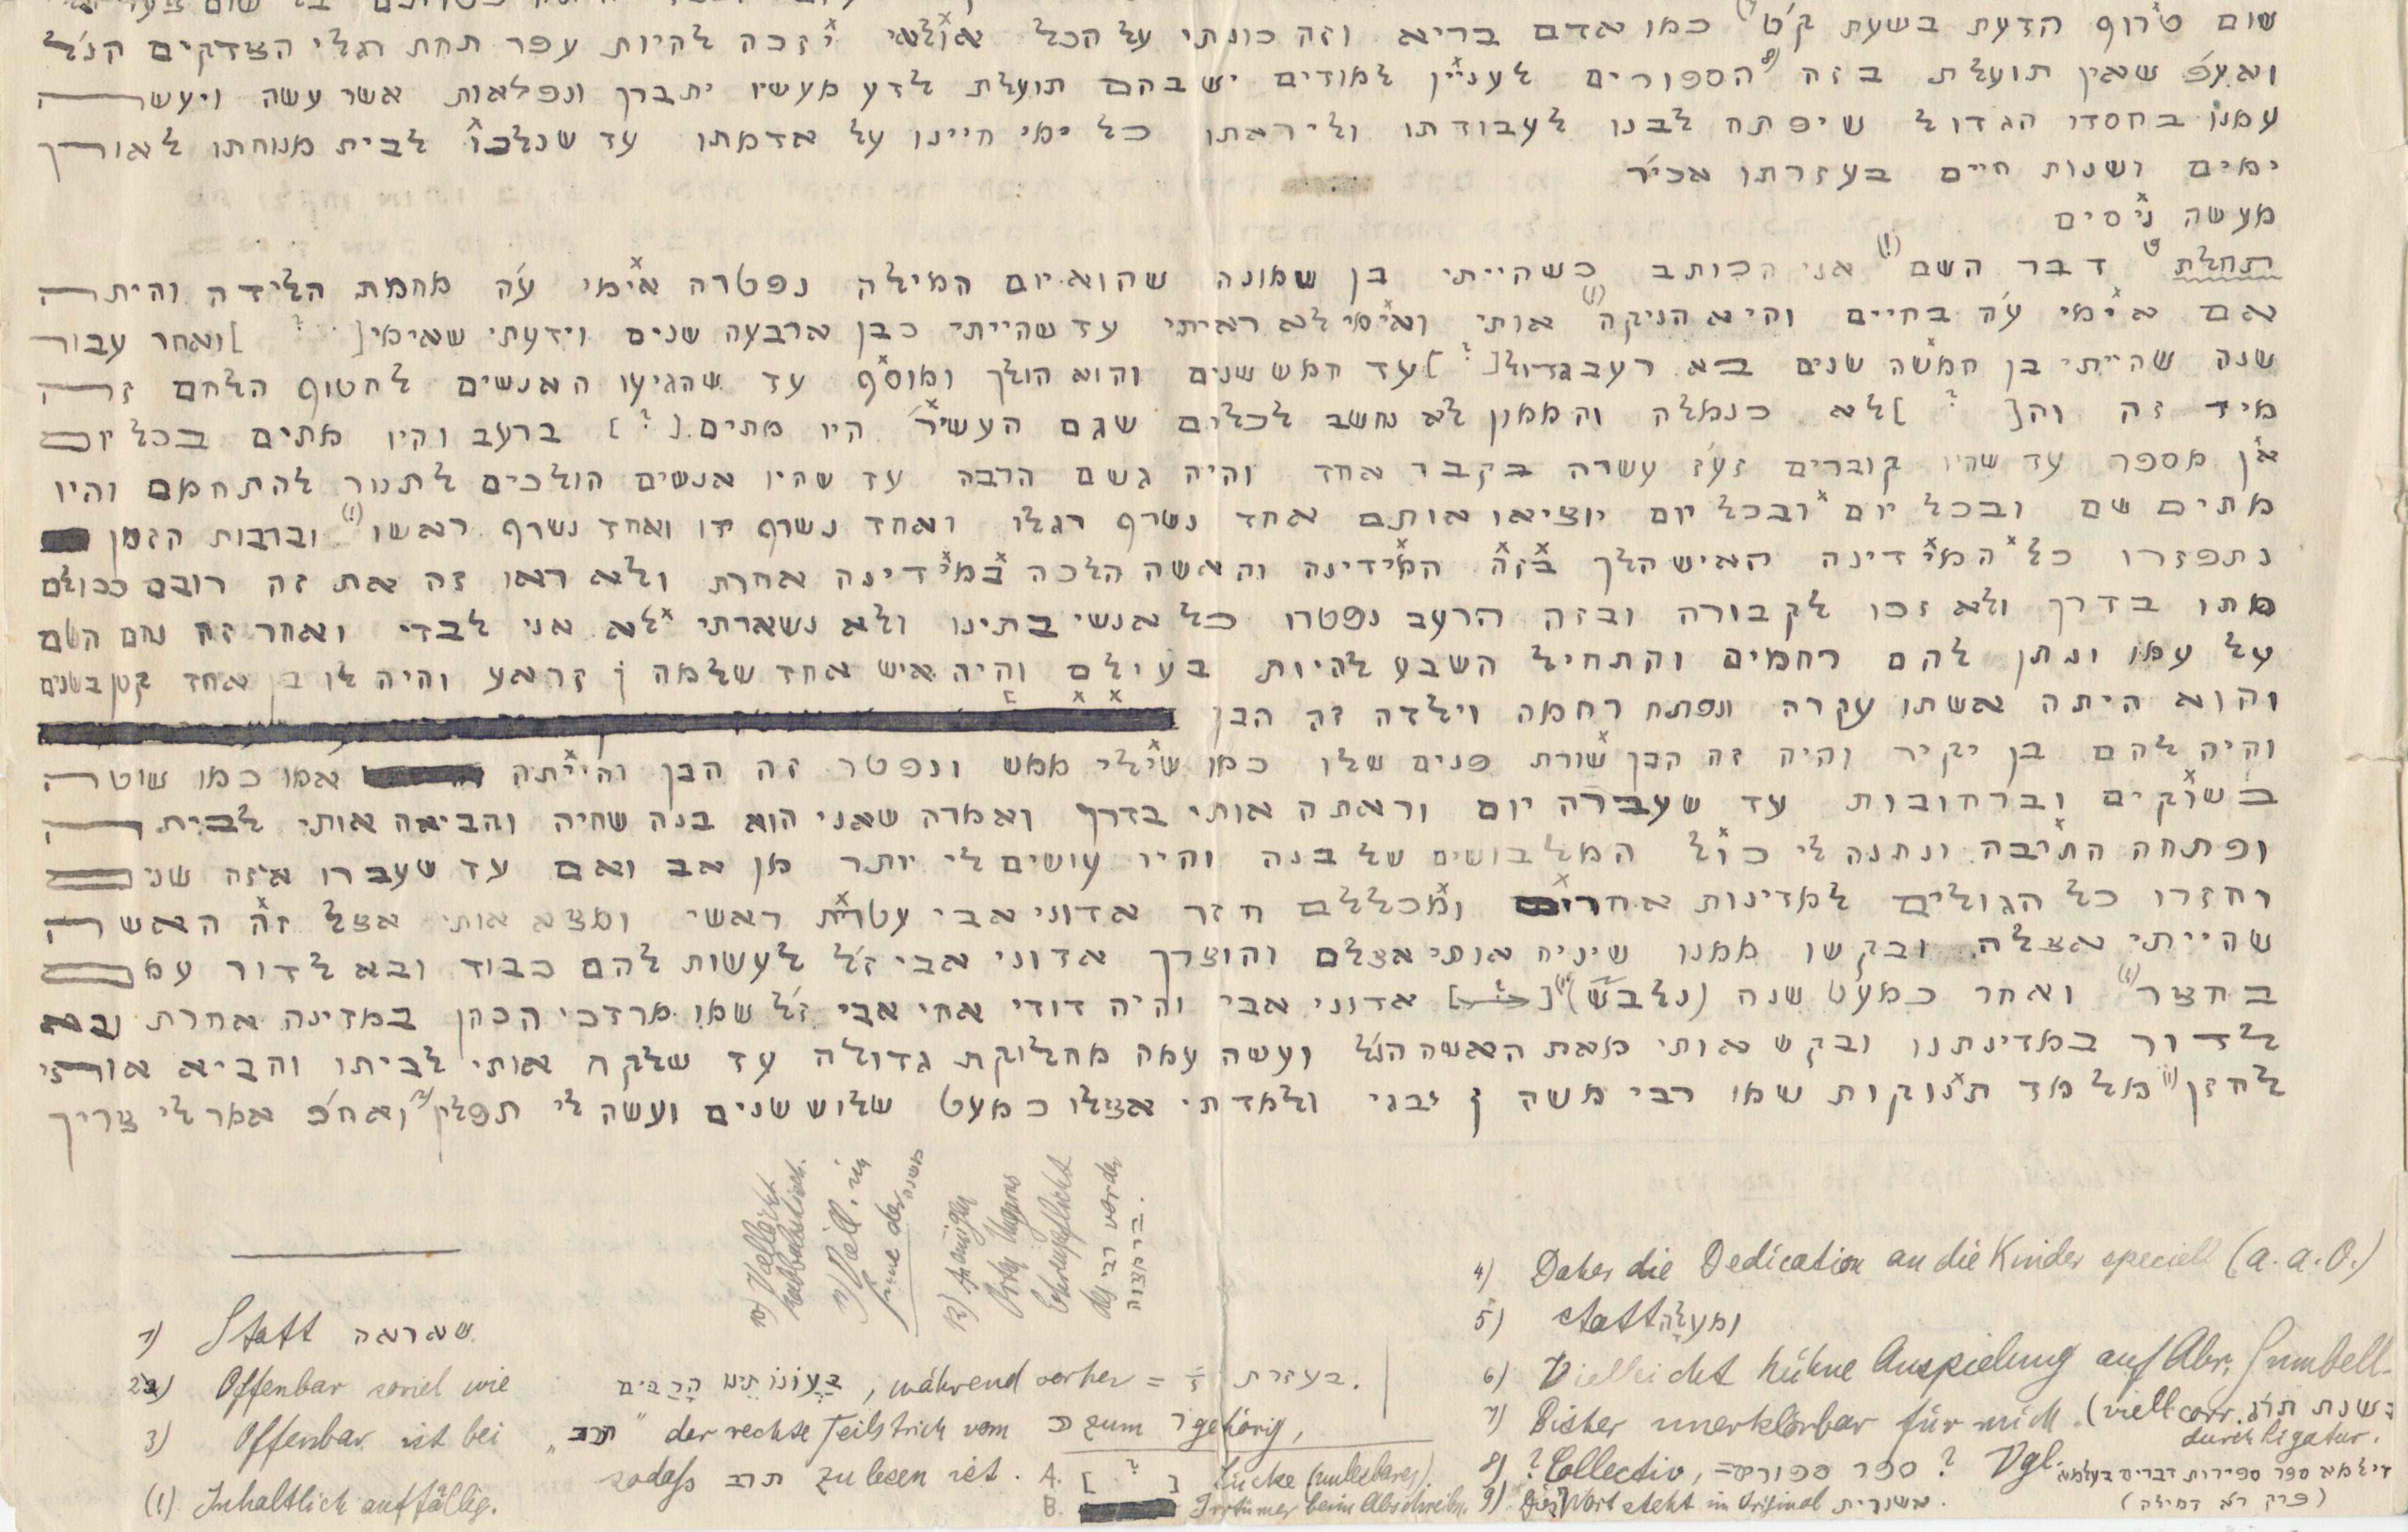 שום טרוף הדעת בשעת ק'ט כמו אדם בריא וזה כונתי על הכל אולאי יזכה להיות עפר תחת רגלי הצדקים הנ'ל
ואע'פ שאין תועלת בזה הספורים לעניין למודים יש בהם תועלת לדע מעשיו יתברך ונפלאות אשר עשה ויעשה
עמנו בחסדו הגדול שיפתח לבנו לעבודתו וליראתו כל ימי חיינו על אדמתו עד שנלכו לבית מנוחתו לאורך
ימים ושנות חיים בעזרתו אכי'ר
מעשה ניסים
תחלת דבר השם (!) אני הכותב כשהייתי בן שמונה שהוא יום המילה נפטרה אימי ע'ה מחמת הלידה והיתה
אם אימי ע'ה בחיים והיא הניקה (!) אותי ואימי לא ראיתי עד שהייתי כבן ארבעה שנים וידעתי שאימי [ ? ] ואחר עבור
שנה שהייתי בן חמשה שנים בא רעב גדול [ ? ] עד חמש שנים והוא הולך ומוסף עד שהגיעו האנשים לחטוף הלחם זה
מיד זה וה[ ? ] לא כנמלה והממון לא נחשב לכלים שגם העשיר היו מתים [ ? ] ברעב והיו מתים בכל יום
אן מספר עד שהיו קוברים זע'ז עשרה בקבר אחד והיה גשם הרבה עד שהיו אנשים הולכים לתנור להתחמם והיו
מתים שם ובכל יום ובכל יום יוציאו אותם אחד נשרף רגלו ואחד נשרף ידו ואחד נשרף ראשו (!) וברבות הזמן
נתפזרו כל המידינה האיש הלך בזה המידינה והאשה הלכה במידינה אחרת ולא ראו זה את זה רובם ככולם
מתו בדרך ולא זכו לקבורה ובזה הרעב נפטרו כל אנשי בתינו ולא נשארתי לא אני לבדי ואחר זה נחם השם
על עמו ונתן להם רחמים והתחיל השבע להיות בעילם והיה איש אחד שלמה ן זראע והיה לו בן אחד קטן בשנים
והוא היתה אשתו עקרה ונפתח רחמה וילדה זה הבן
והיה להם בן יקיר והיה זה הבן שורת פנים שלו כמו שילי ממש ונפטר זה הבן והייתה אמו כמו שוטה
בשוקים וברחובות עד שעברה יום וראתה אותי בדרך ואמרה שאני הוא בנה שחיה והביאה אותי לבית
ופתחה התיבה ונתנה לי כול המלבושים של בנה והיו עושים לי יותר מן אב ואם עד שעברו איזה שנים
וחזרו כל הגולים למדינות אחרים ומכללם חזר אדוני אבי עטרת ראשי ומצא אותי אצל זה האשה
שהייתי אצלה ובקשו ממנו שיניח אותי אצלם והוצרך אדוני אבי ז'ל לעשות להם כבוד ובא לדור עמם
בחצר (!) ואחר כמעט שנה (נלבש) (!) [ ? ] אדוני אבי והיה דודי אחי אבי ז'ל שמו מרדכי הכהן במדינה אחרת ובא
לדור במדינתנו ובקש אותי מאת האשה הנ'ל ועשה עמה מחלוקת גדולה עד שלקח אותי לביתו והביא אותי
לחזן מלמד תינוקות שמו רבי משה ן יבגי ולמדתי אצלו כמעט שלוש שנים ועשה לי תפלין ואח'כ אמר לי צריך
10) Vielleicht kabbalistisch.
11) Viell. im Sinne der משנה
12)
des רבי vor der ברמצוה.
1) Statt שאראה
2) Offenbar soviel wie בַּעֲוֹנוֹתֵינוּ הָרַבִּים, während vorher = בעזרת.
3) Offenbar ist bei „תרב" der rechte Teilstrich vom כ zum ר gehörig,
sodass תרב zu lesen ist.
(!) Inhaltlich auffällig.
A. [ ? ] Lücke (unlesbares).
B. Irrtümer beim Abschreiben.
4) Daher die Dedication an die Kinder speciell (a.a.O.)
5) statt ומעלה
6) Vielleicht kühne Anspielung auf Abr. Sumbell.
7) Bisher unerklärbar für mich. (viell. corr. בשנת תרג durch Ligatur.
8) ? Collectiv, = ספר ספורים ? Vgl. דילמא ספר ספירות דברים בעלמא
(פרק ר'א דמילה)
9) Dies Wort steht im Original אשורית.